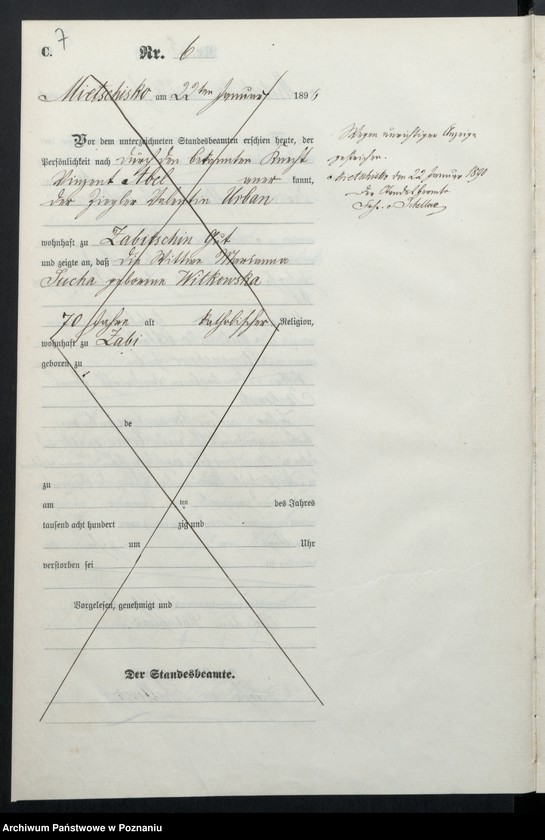 C. 7
Nr. 6
Mietschisko am 22ten Januar 189
Vor dem unterzeichneten Standesbeamten erschien heute, der
Persönlichkeit nach durch den bekannten Knecht
Vinzent Abel kannt,
der Ziegler Valentin Urban
wohnhaft zu Zabitschin Gut
und zeigte an, daß die Wittwe Marianna
Sucha geborene Witkowska
70 Jahre alt katholischer Religion,
wohnhaft zu Zabi
geboren zu
de
zu
am ten des Jahres
tausend acht hundert zig und
um Uhr
verstorben sei
Vorgelesen, genehmigt und
Der Standesbeamte.
Wegen unrichtiger Anzeige
gestrichen.
den 22 Januar 1890
Der Standesbeamte
Archiwum Państwowe w Poznaniu